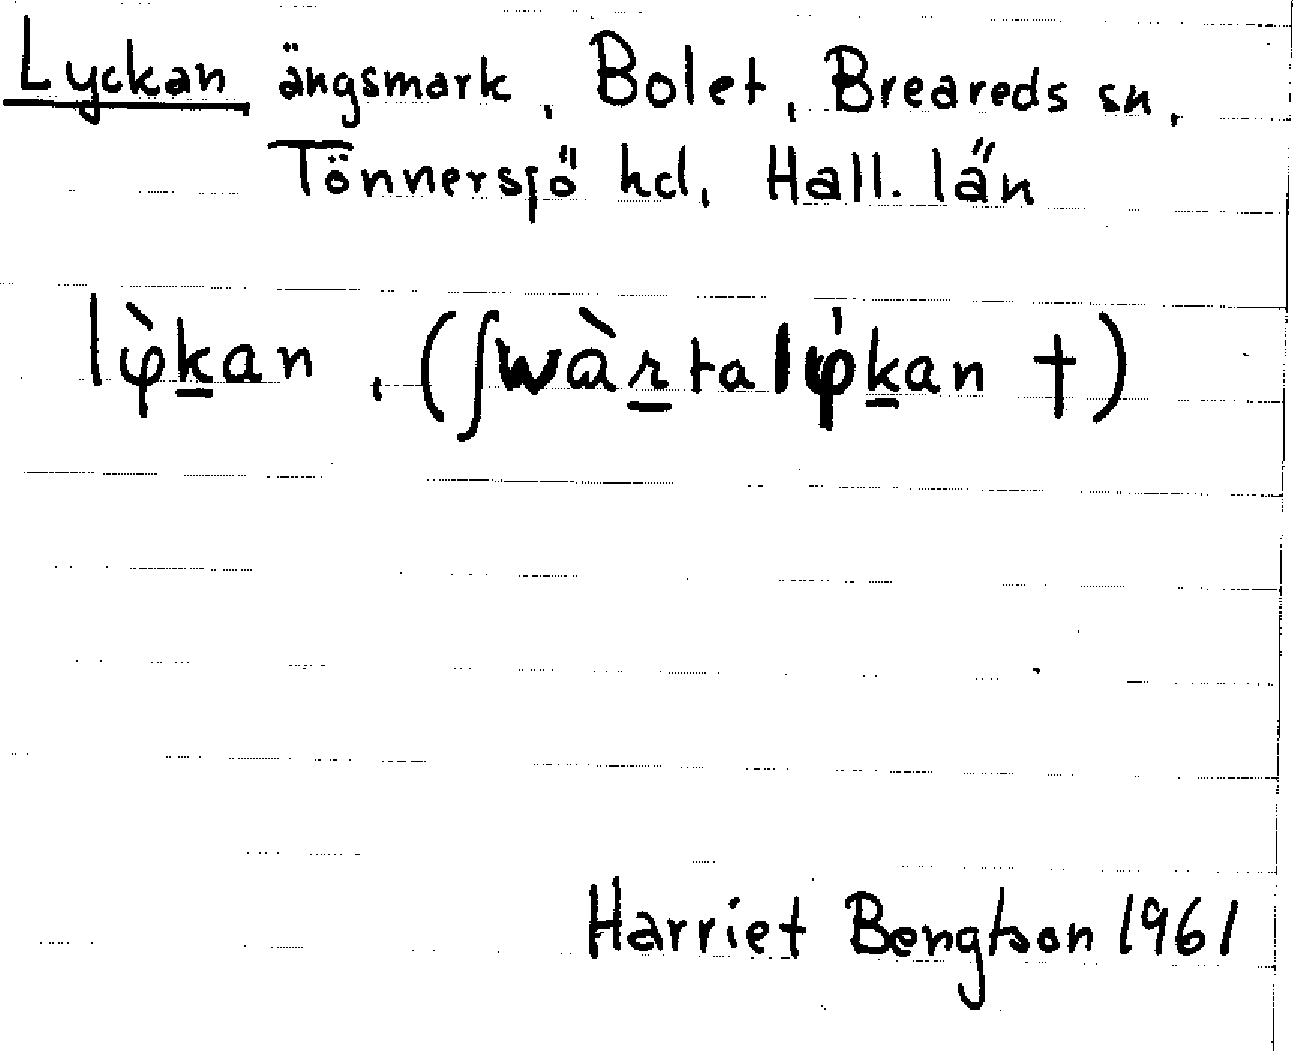 Lyckan ängsmark, Bolet, Breareds sn,
Tönnersjö hd, Hall. län
lφ̀k̲an, (ʃwàr̲talφ̍k̲an †)
Harriet Bengtson 1961